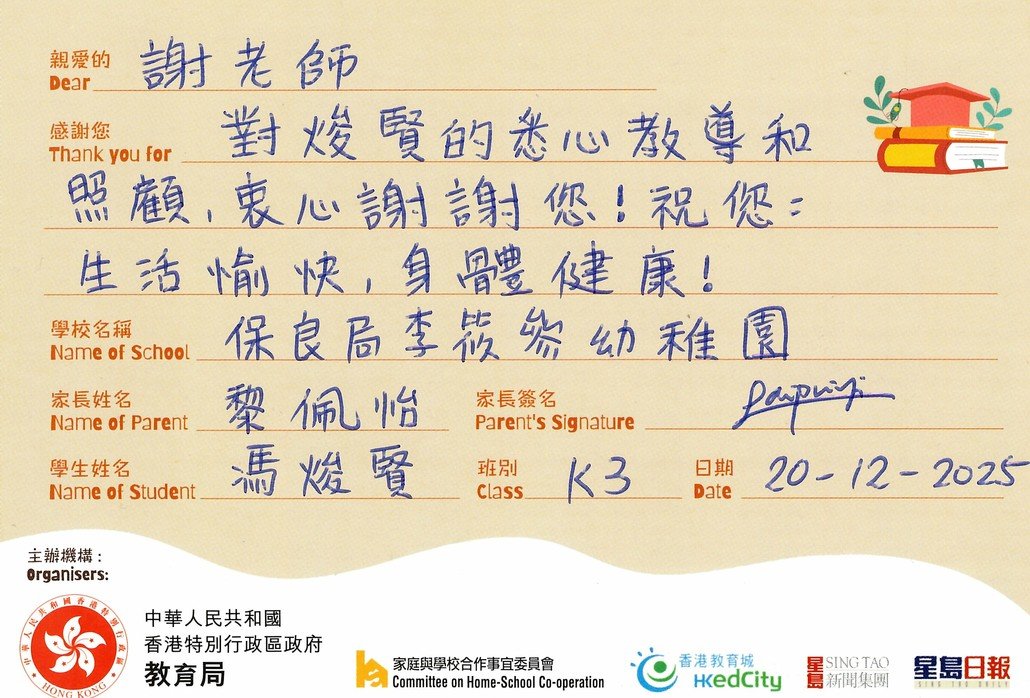 親愛的 謝老師
Dear
感謝您 對焌賢的悉心教導和
Thank you for
照顧，衷心謝謝您！祝您：
生活愉快，身體健康！
學校名稱 保良局李筱參幼稚園
Name of School
家長姓名 黎佩怡 家長簽名
Name of Parent Parent's Signature
學生姓名 馮焌賢 班別 K3 日期 20-12-2025
Name of Student Class Date
主辦機構：
Organisers:
中華人民共和國香港特別行政區
HONG KONG
中華人民共和國
香港特別行政區政府
教育局
家庭與學校合作事宜委員會
Committee on Home-School Co-operation
香港教育城
HKedCity
星島 SING TAO
新聞集團
星島日報
SING TAO DAILY